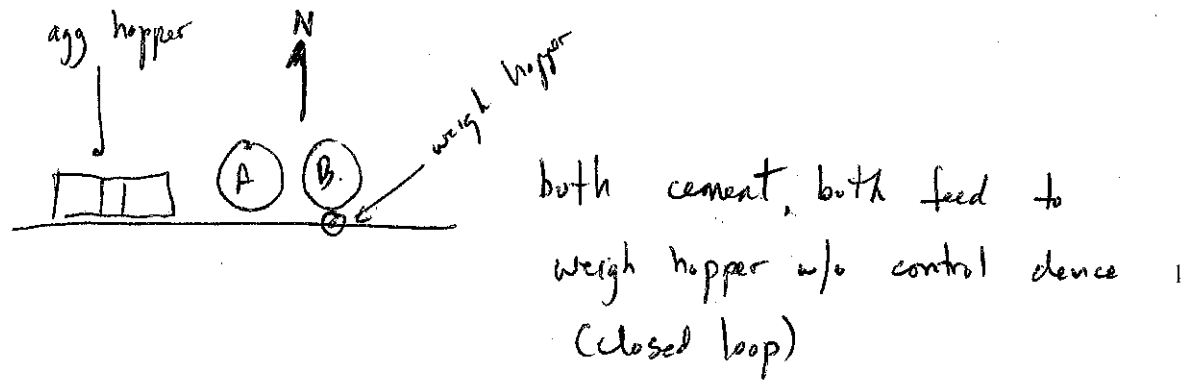 agg hopper
N
weigh hopper
A
B.
both cement, both feed to
weigh hopper w/o control device
(closed loop)